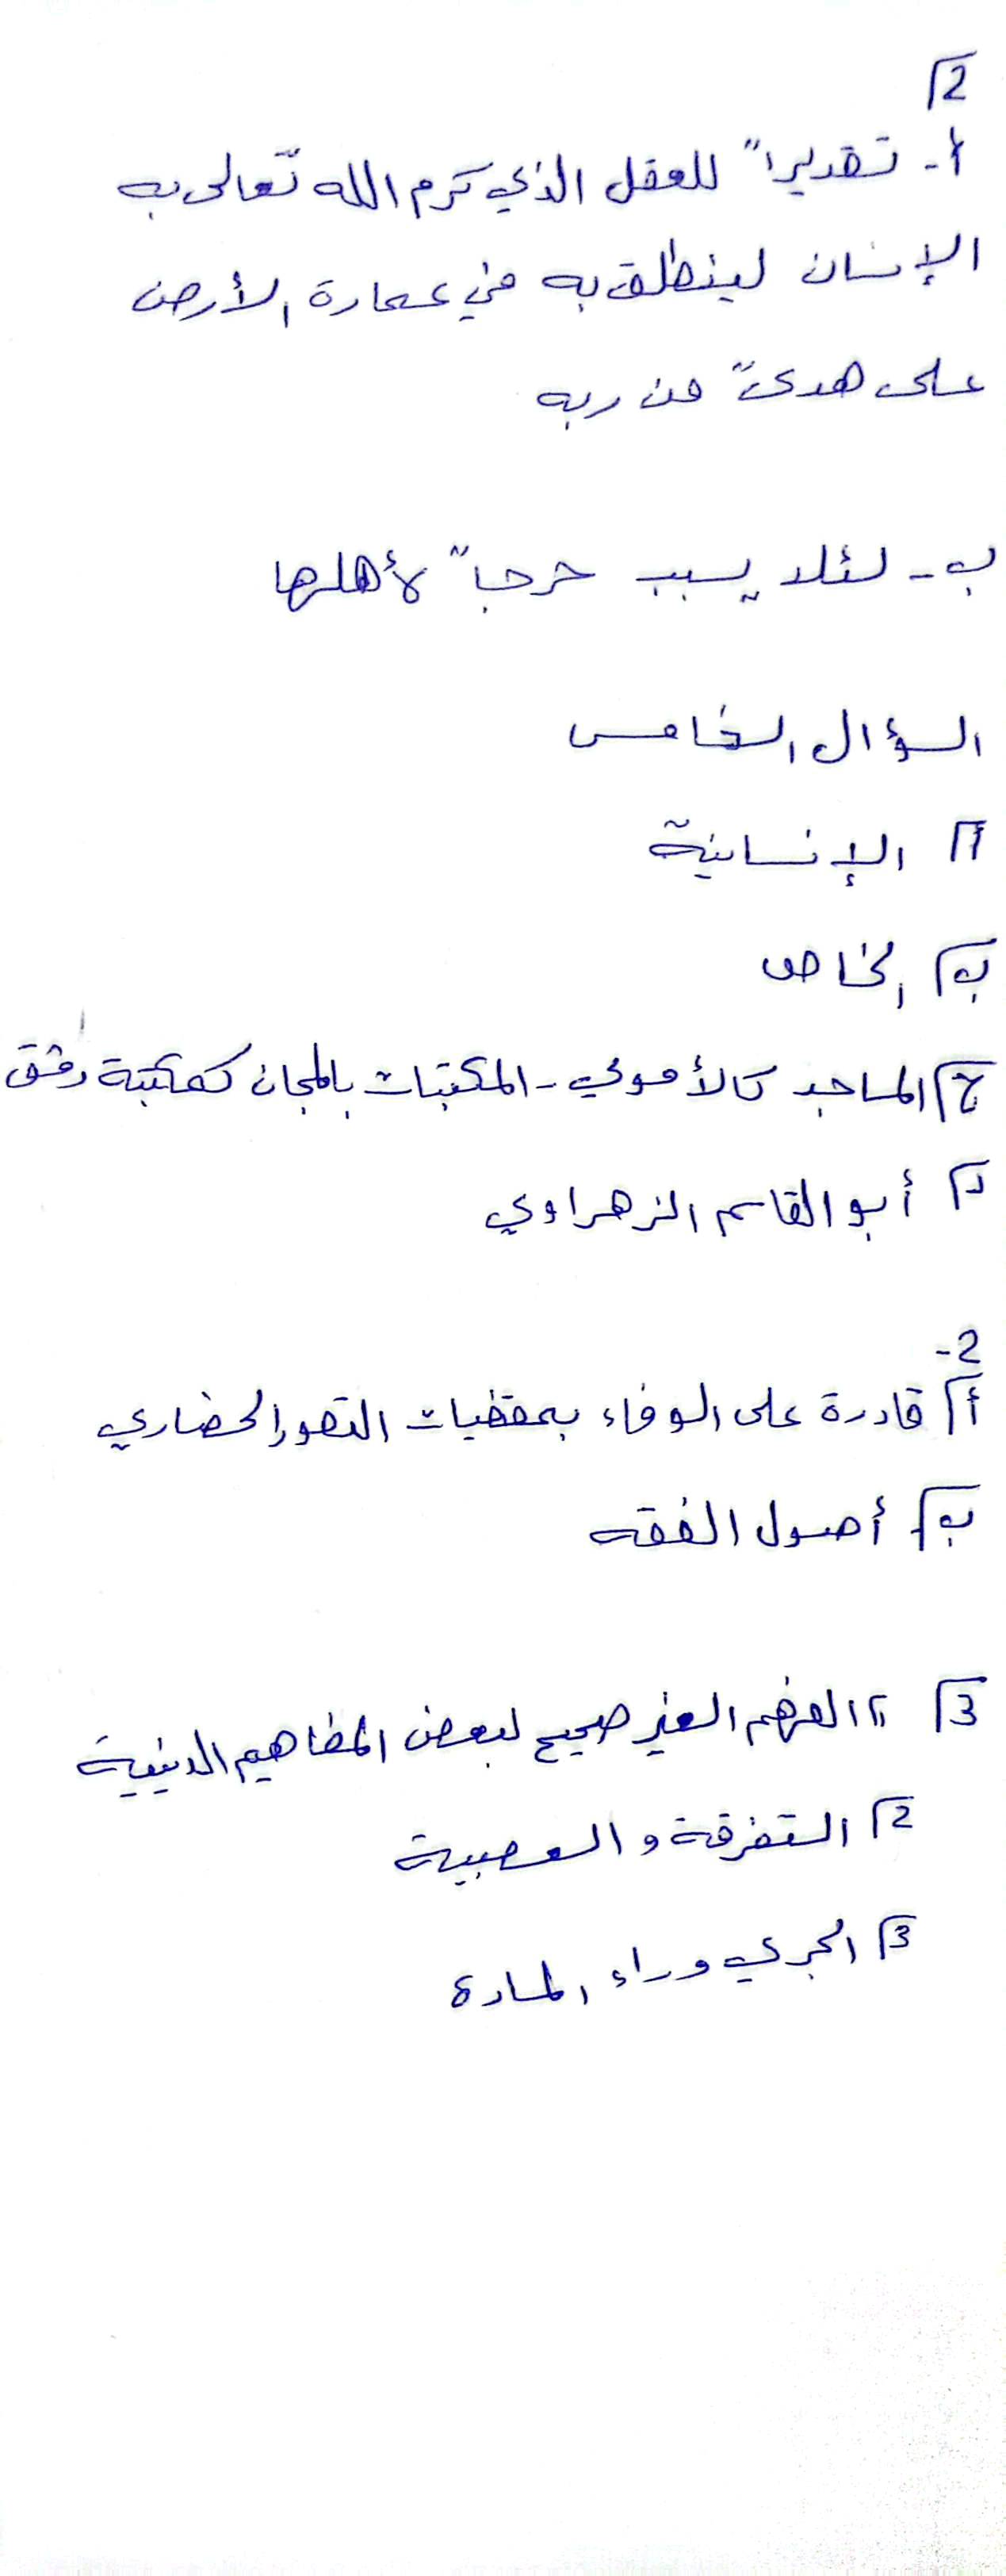 2
أ- تقديراً للعقل الذي كرم الله تعالى به
الإنسان لينطلق به في عمارة الأرض
على هدىً من ربه
ب- لئلا يسبب حرجاً لأهلها
السؤال الخامس
1 الإنسانية
ب الخاص
ج المساجد كالأموي - المكتبات بالمجان كمكتبة دمشق
د أبو القاسم الزهراوي
2-
أ قادرة على الوفاء بمقضيات التصور الحضاري
ب أصول الفقه
3 1 الفهم الغير صحيح لبعض المفاهيم الدينية
2 التفرقة والعصبية
3 الجري وراء المادة